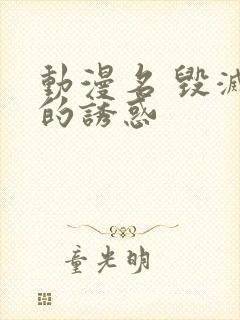 動漫名 毀滅
的誘惑
童光明